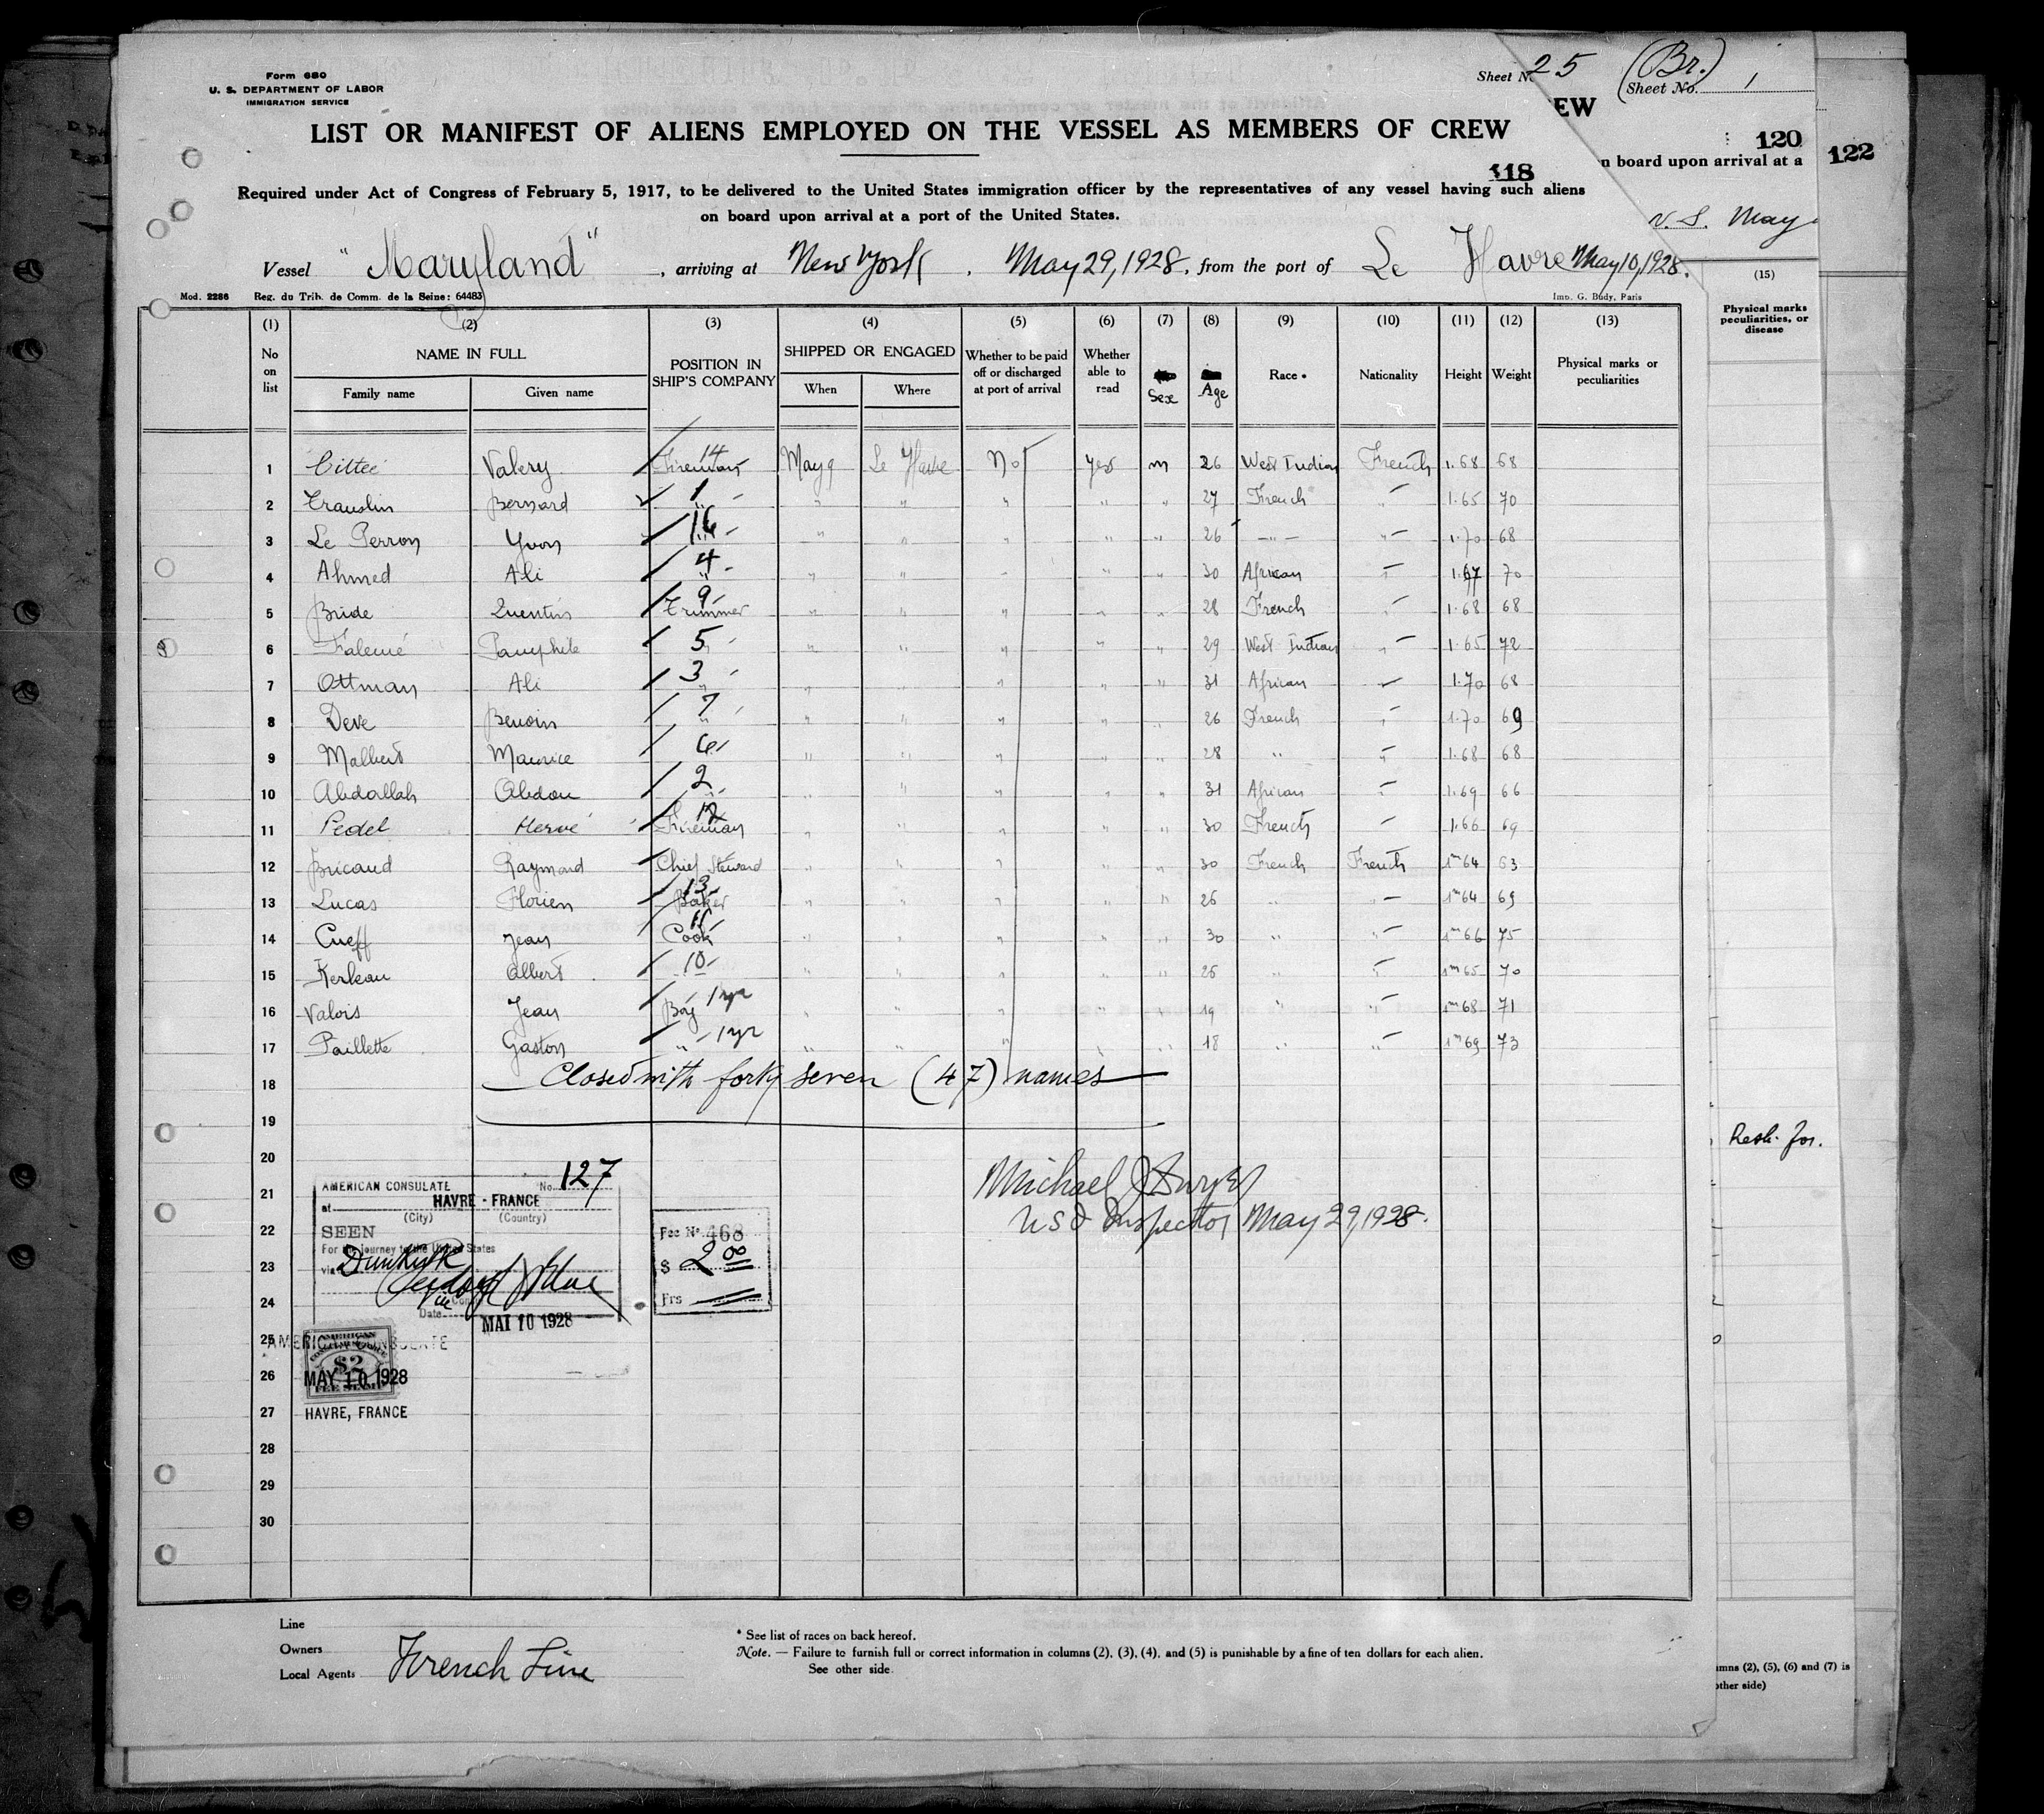 Form 680
U. S. DEPARTMENT OF LABOR
IMMIGRATION SERVICE
Sheet N. 25
(Br.)
Sheet No. 1
EW
LIST OR MANIFEST OF ALIENS EMPLOYED ON THE VESSEL AS MEMBERS OF CREW
118
120
122
n board upon arrival at a
Required under Act of Congress of February 5, 1917, to be delivered to the United States immigration officer by the representatives of any vessel having such aliens
on board upon arrival at a port of the United States.
May
Vessel "Maryland", arriving at New York, May 29, 1928, from the port of Le Havre May 10, 1928.
Mod. 2286 Reg. du Trib. de Comm. de la Seine: 64483 Imp. G. Budy, Paris
(1) (2) (3) (4) (5) (6) (7) (8) (9) (10) (11) (12) (13)
No on list NAME IN FULL Family name Given name POSITION IN SHIP'S COMPANY SHIPPED OR ENGAGED When Where Whether to be paid off or discharged at port of arrival Whether able to read Sex Age Race * Nationality Height Weight Physical marks or peculiarities
(15)
Physical marks peculiarities, or disease
1 Valery Fireman 14 May 9 Le Havre No Yes m 26 West Indian French 1.68 68
2 Bernard " 1 " " " " " 27 French " 1.65 70
3 Le Perron Yvon " " " " " " 26 " " 1.70 68
4 Ahmed Ali " 4 " " " " " 30 African " 1.67 70
5 Bride Quentin Trimmer 9 " " " " " 28 French " 1.68 68
6 Pamphile " 5 " " " " " 29 West Indian " 1.65 72
7 Ottman Ali " 3 " " " " " 31 African " 1.70 68
8 Deve Benoin " 7 " " " " " 26 French " 1.70 69
9 Malbert Maurice 6 " " " " " 28 " " 1.68 68
10 Abdallah Abdou " 2 " " " " " 31 African " 1.69 66
11 Pedel Hervé Fireman 12 " " " " " 30 French " 1.66 69
12 Bricaud Raymond Chief Steward " " " " " 30 French French 1m64 63
13 Lucas Florien Baker 13 " " " " " 26 " " 1m64 69
14 Cueff Jean Cook 11 " " " " " 30 " " 1m66 75
15 Kerleau Albert 10 " " " " " 26 " " 1m65 70
16 Valois Jean Boy 1 yr " " " " " 19 " " 1m68 71
17 Paillette Gaston " 1 yr " " " " " 18 " " 1m69 73
18 Closed with forty seven (47) names
19
Resh. for.
20
21
22
23
24
25
26
27
28
29
30
AMERICAN CONSULATE No. 127
at HAVRE - FRANCE
(City) (Country)
SEEN
For the journey to the United States
via Dunkirk
Date MAI 10 1928
Fee No. 468
$ 2 00
Frs
Michael J Dwyer
US I Inspector May 29, 1928.
AMERICAN CONSULATE
$2
MAY 10 1928
HAVRE, FRANCE
Line
Owners
Local Agents French Line
* See list of races on back hereof.
Note. — Failure to furnish full or correct information in columns (2), (3), (4), and (5) is punishable by a fine of ten dollars for each alien.
See other side.
umns (2), (5), (6) and (7) is
other side)